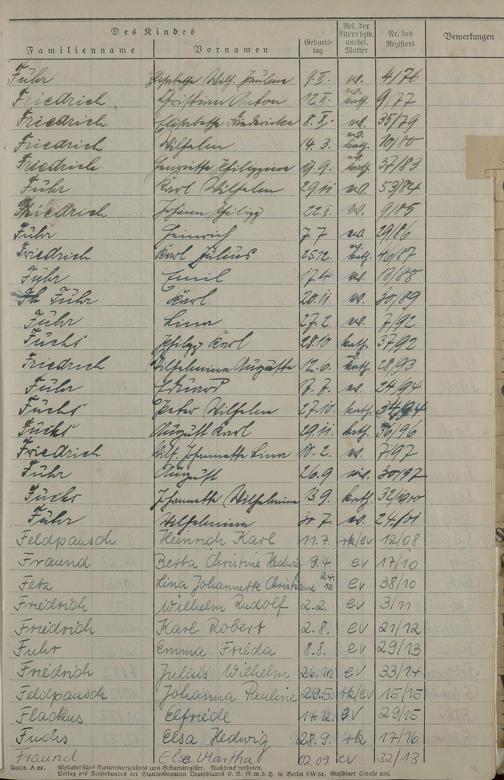 Des Kindes
Familienname Vornamen Geburtstag Rel. der Eltern bzw. unehel. Mutter Nr. des Registers Bemerkungen
Führ Elisabethe Wilh. Pauline ev. 4/76
Friedrich Christian Anton 12.II. ev. kath. 9/77
Friedrich Elisabethe Friederike 8.X. ev. 35/79
Friedrich Wilhelm 14.3. ev. kath. 10/80
Friedrich Henriette Philippine 17.9. ev. kath. 37/83
Führ Karl Wilhelm 29.11 ev. 53/84
Friedrich Johann Philipp ev. 9/85
Führ Heinrich 7.7 ev. 29/86
Friedrich Karl Julius 25.12. ev. kath. 46/87
Führ Emil 17.4 ev.
Führ Karl 20.11 ev. 30/89
Führ Lina 27.2. ev. 7/92
Fuchs Philipp Karl 28.10 kath. 37/92
Friedrich Wilhelmine Auguste 12.6. kath. 28/93
Führ Eduard 7.8. ev. 24/94
Fuchs Peter Wilhelm 27.10. kath. 34/94
Fuchs August Karl 29.11. kath. 36/96
Friedrich Wilh. Johannette Lina 10.2. ev. 7/97
Führ August 26.9 ev. 30/97
Fuchs Johannette Wilhelmine kath. 32/1900
Führ Wilhelmine ev. 24/01
Feldpausch Heinrich Karl 11.7. rk/ev 12/08
Fraund Berta Christine Hedwig 9.4. ev 17/10
Fetz Lina Johannette Christiane 24.10. ev 38/10
Friedrich Wilhelm Rudolf 2.2. ev 3/11
Friedrich Karl Robert 2.8. ev 21/12
Fuhr Emma Frieda 8.8. ev 29/13
Friedrich Julius Wilhelm 26.10. ev 33/14
Feldpausch Johanna Pauline 29.5. rk/ev 15/15
Flackus Elfriede 14.12. ev 29/15
Fuchs Elsa Hedwig 28.9. rk 17/16
Fraund Elsa Martha 02.09 ev 32/13
Vordr. A 21. Alphabetisches Namensverzeichnis zum Geburtsregister. Nachdruck verboten.
Verlag des Reichsbundes der Standesbeamten Deutschlands E. V. G. m. b. H. in Berlin SW 61, Gitschiner Straße 109.